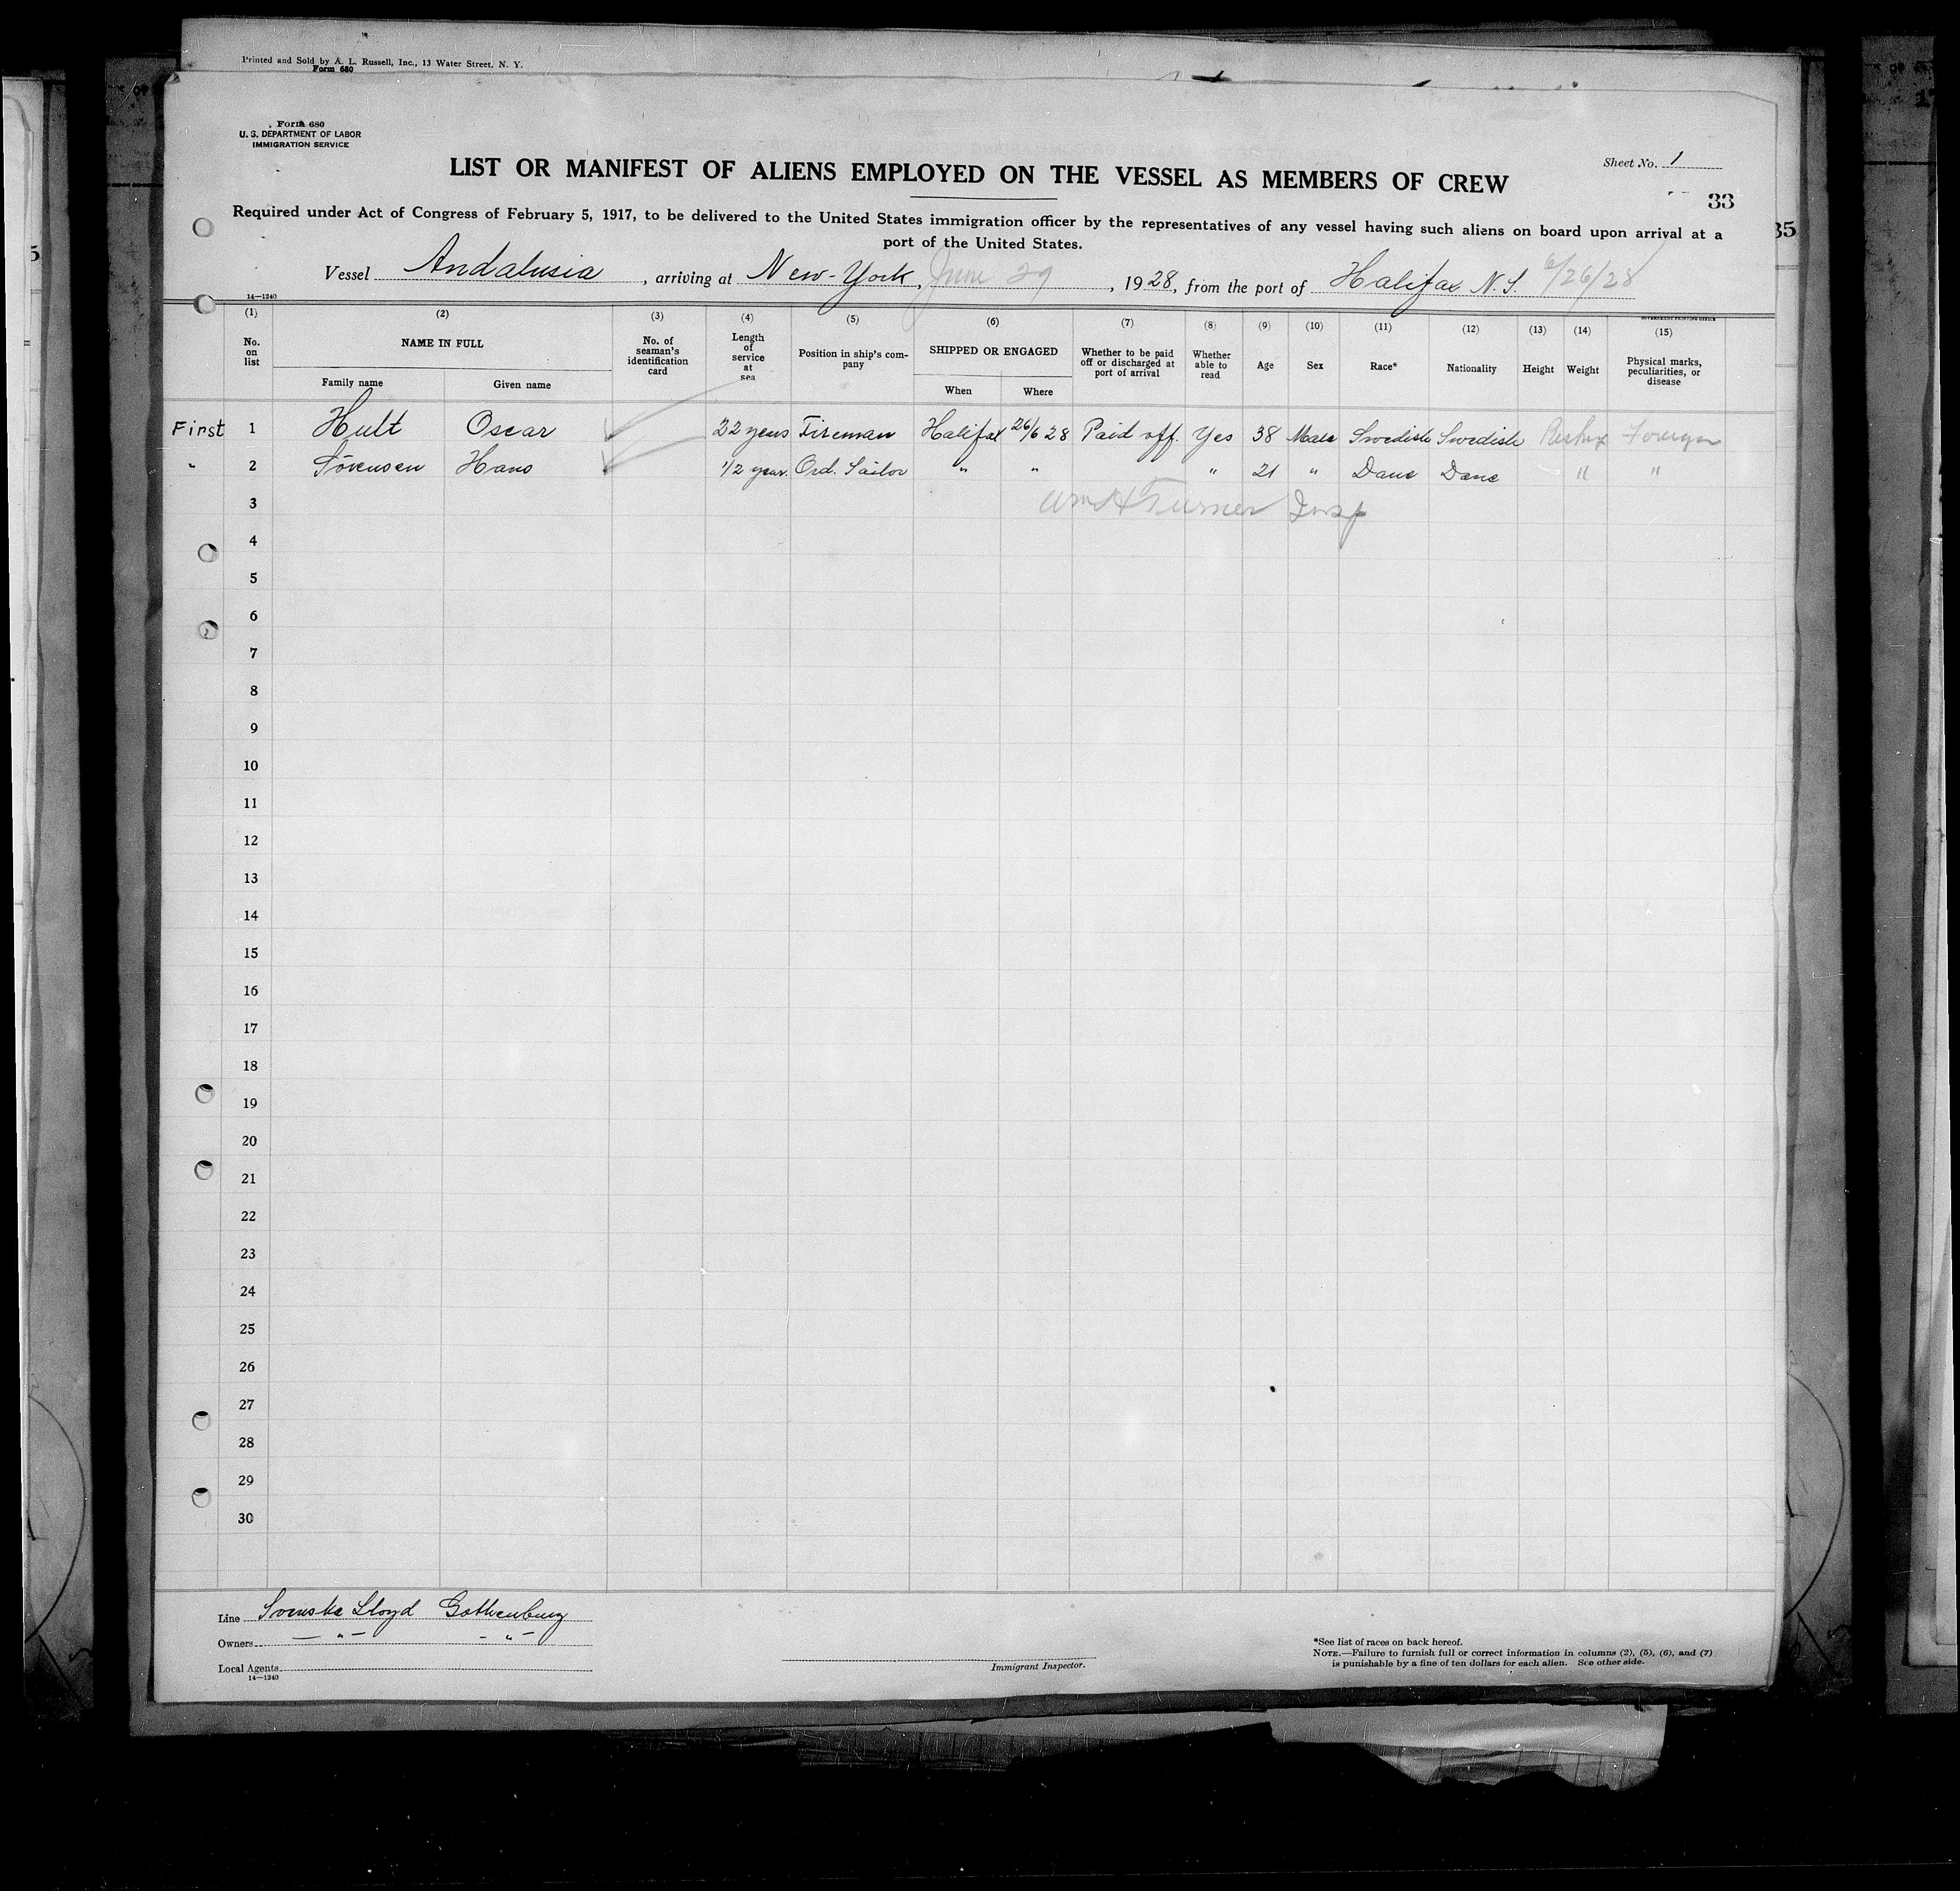 Printed and Sold by A. L. Russell, Inc., 13 Water Street, N. Y.
Form 680
Form 680
U. S. DEPARTMENT OF LABOR
IMMIGRATION SERVICE
Sheet No. 1
LIST OR MANIFEST OF ALIENS EMPLOYED ON THE VESSEL AS MEMBERS OF CREW
33
Required under Act of Congress of February 5, 1917, to be delivered to the United States immigration officer by the representatives of any vessel having such aliens on board upon arrival at a
port of the United States.
35
Vessel Andalusia, arriving at New-York, June 29, 1928, from the port of Halifax N.S. 6/26/28
14—1240
GOVERNMENT PRINTING OFFICE
(1) (2) (3) (4) (5) (6) (7) (8) (9) (10) (11) (12) (13) (14) (15)
No. on list NAME IN FULL No. of seaman's identification card Length of service at sea Position in ship's company SHIPPED OR ENGAGED Whether to be paid off or discharged at port of arrival Whether able to read Age Sex Race* Nationality Height Weight Physical marks, peculiarities, or disease
Family name Given name When Where
First 1 Hult Oscar 22 years Fireman Halifax 26/6 28 Paid off. Yes 38 Male Swedish Swedish Foreign
" 2 Sörensen Hans 1/2 year. Ord. Sailor " " " 21 " Dane Dane " "
3 Wm H Turner Insp
4
5
6
7
8
9
10
11
12
13
14
15
16
17
18
19
20
21
22
23
24
25
26
27
28
29
30
Line Svenska Lloyd Gothenburg
Owners — " — - " -
Local Agents
14—1240
Immigrant Inspector.
*See list of races on back hereof.
NOTE.—Failure to furnish full or correct information in columns (2), (5), (6), and (7)
is punishable by a fine of ten dollars for each alien. See other side.